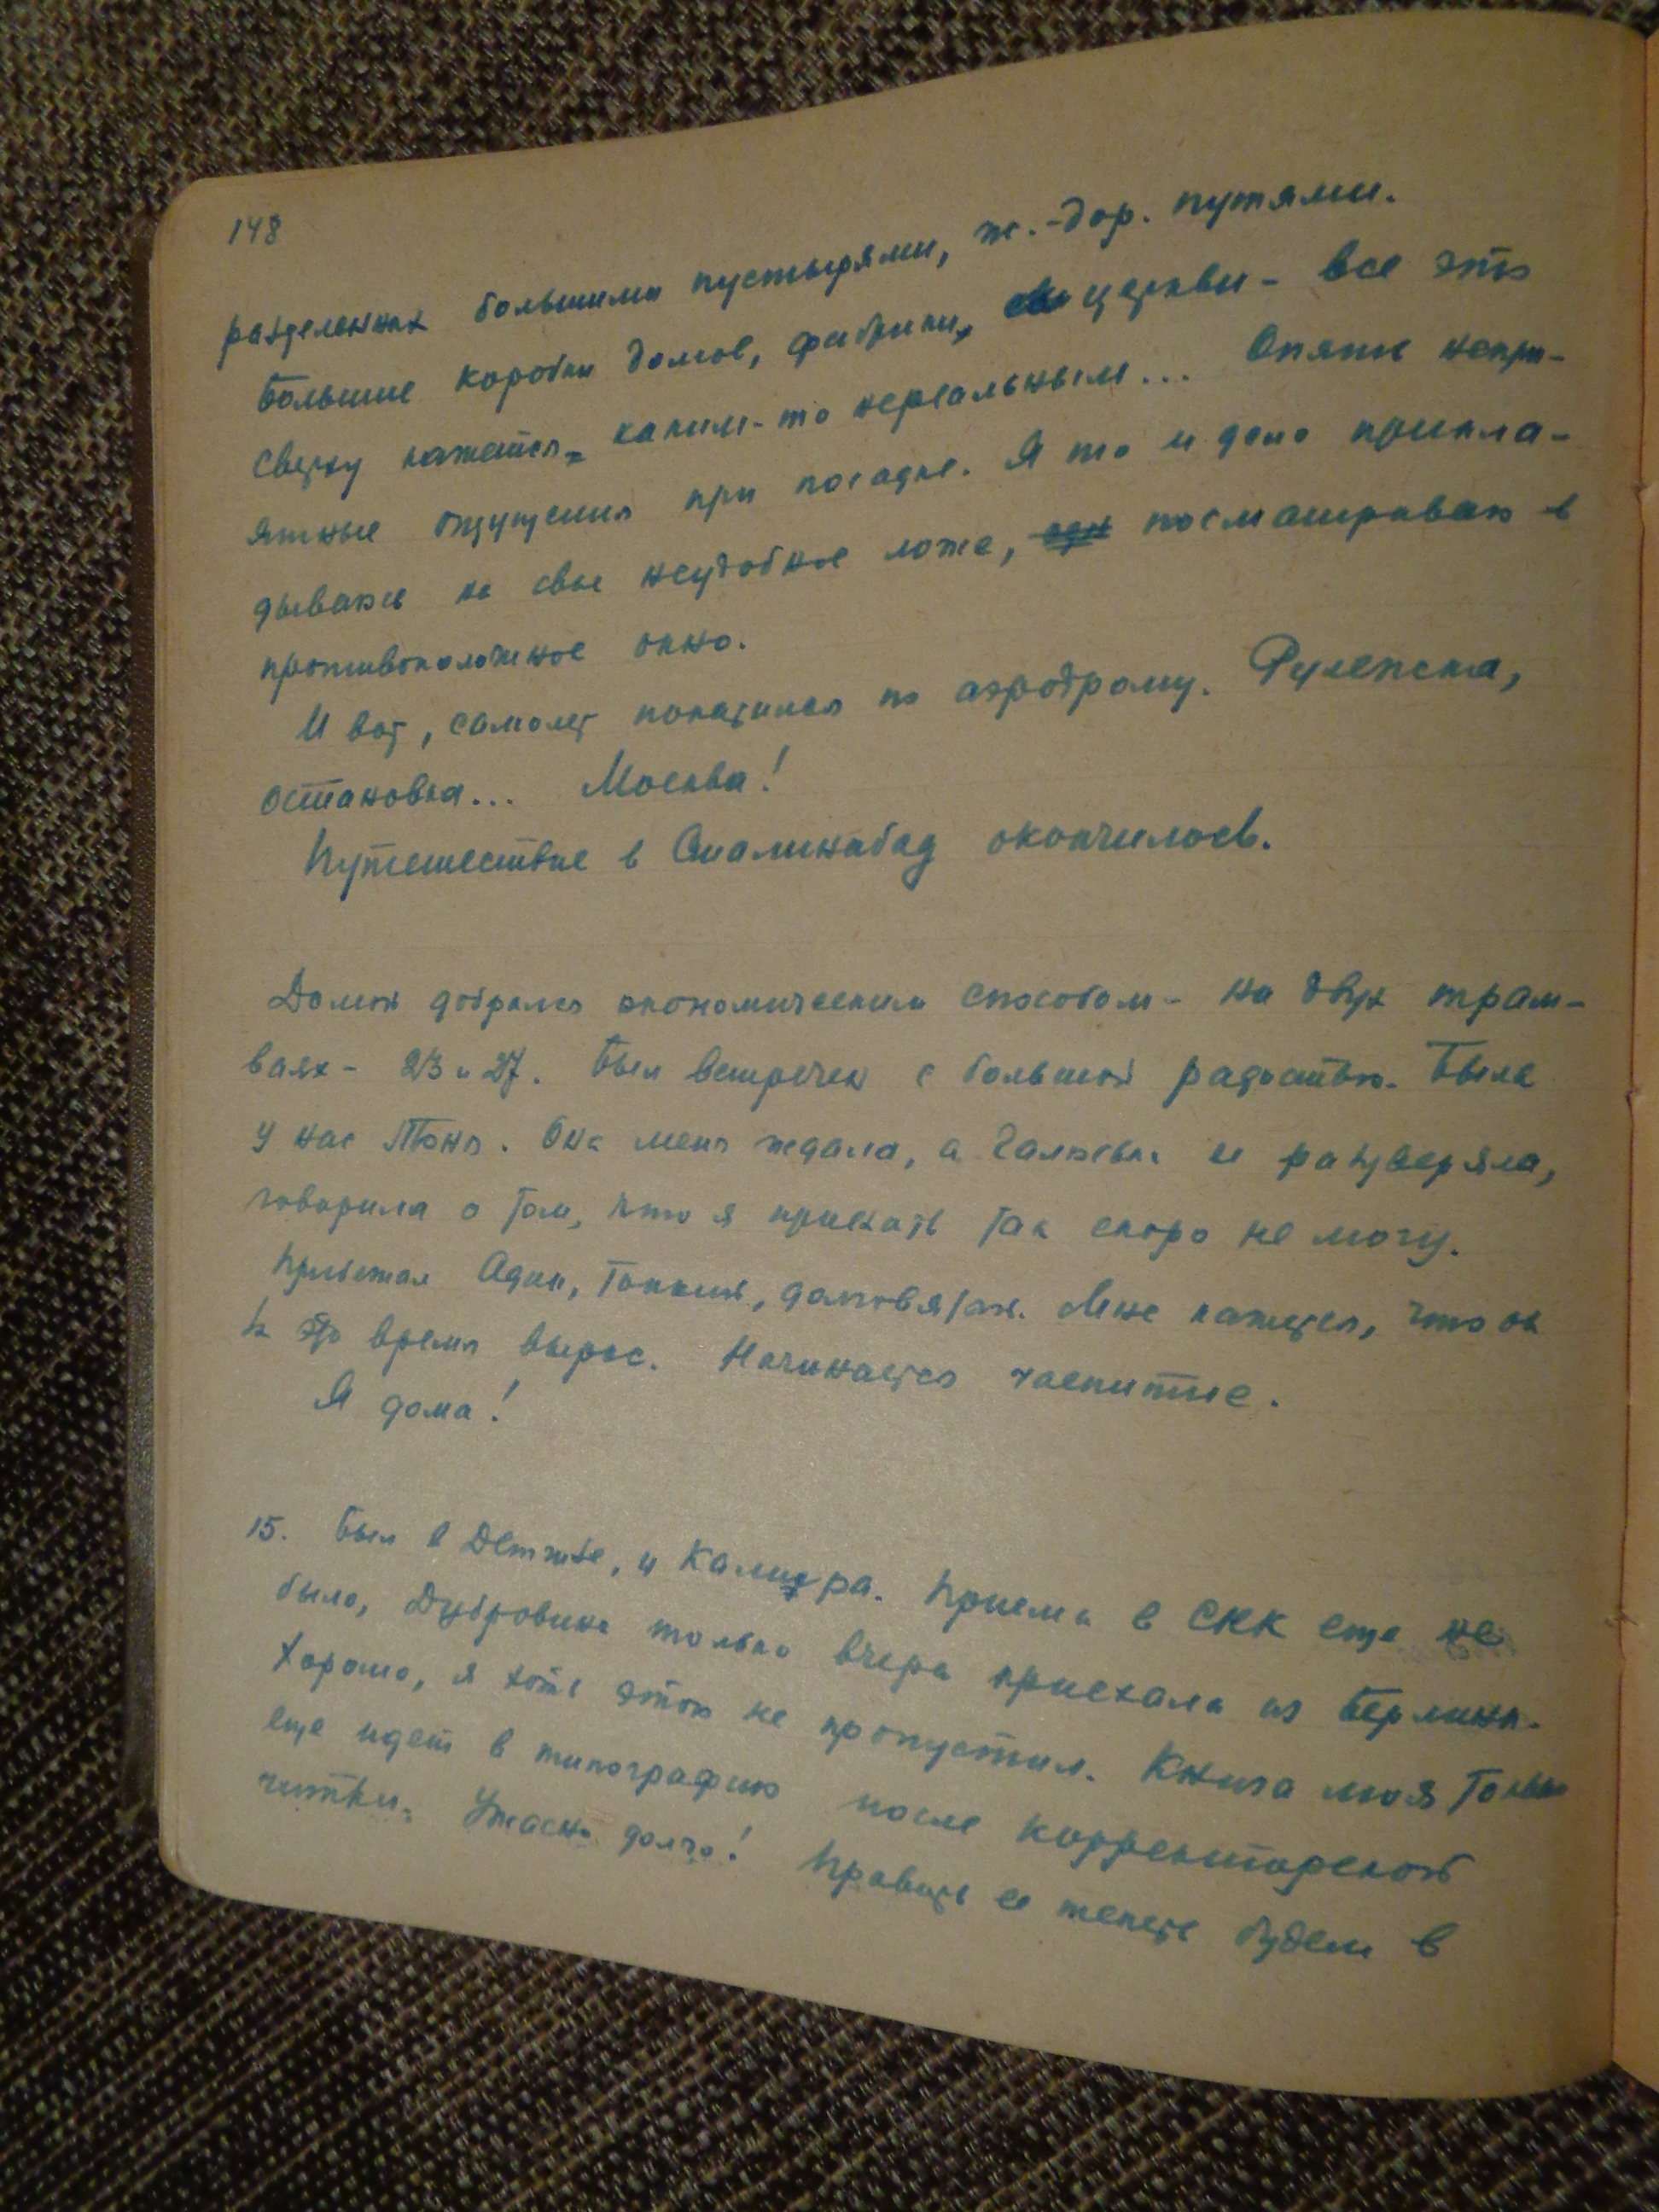 148
разделенных большими пустырями, ж.-дор. путями.
Большие коробки домов, фабрики, церкви - все это
сверху кажется каким-то нереальным... Опять непри-
ятные ощущения при посадке. Я то и дело прикла-
дываюсь на свое неудобное ложе, посматриваю в
противоположное окно.
И вот, самолет покатился по аэродрому. Рулежка,
остановка... Москва!
Путешествие в Сталинабад окончилось.
Домой добрался экономическим способом - на двух трам-
ваях - 23 и 27. Был встречен с большой радостью. Была
у нас Тоня. Она меня ждала, а Галюська ее разуверяла,
говорила о том, что я приехать так скоро не могу.
Прибежал Адик, тонкий, долговязый. Мне кажется, что он
за это время вырос. Начинается чаепитие.
Я дома!
15. Был в Детгизе, у Камира. Приема в СКК еще не
было, Дубровина только вчера приехала из Берлина.
Хорошо, я хоть этого не пропустил. Книга моя только
еще идет в типографию после корректорской
читки. Ужасно долго! Править ее теперь будем в